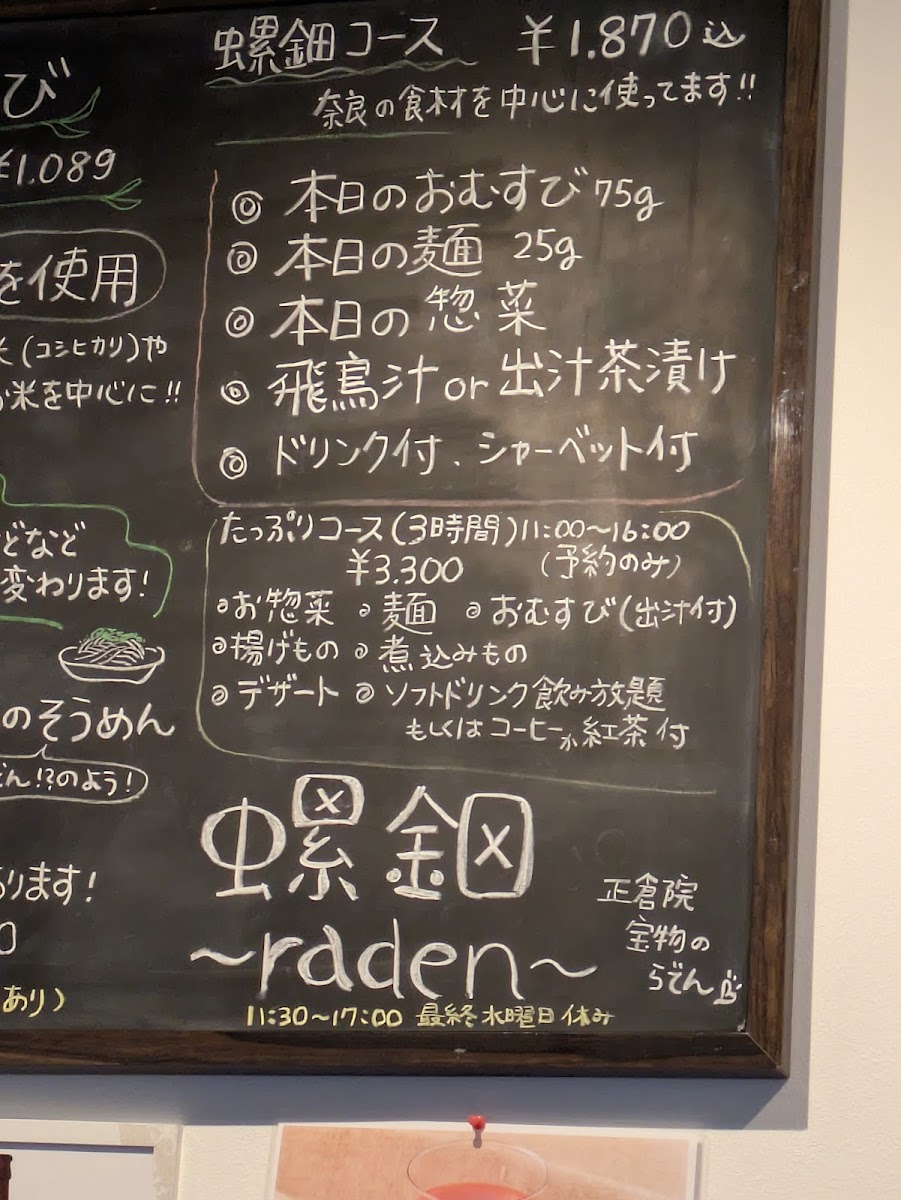 び
¥1.089
を使用
米(コシヒカリ)や
お米を中心に!!
どなど
変わります!
のそうめん
どん!?のよう!
あります!
0
あり)
螺鈿コース ¥1.870込
奈良の食材を中心に使ってます!!
◎ 本日のおむすび75g
◎ 本日の麺 25g
◎ 本日の惣菜
◎ 飛鳥汁or出汁茶漬け
◎ ドリンク付、シャーベット付
たっぷりコース(3時間)11:00〜16:00
¥3.300 (予約のみ)
◎お惣菜 ◎麺 ◎おむすび(出汁付)
◎揚げもの ◎煮込みもの
◎デザート ◎ソフトドリンク飲み放題
もしくはコーヒーか紅茶付
螺鈿
〜raden〜
正倉院
宝物の
らでん
11:30〜17:00 最終水曜日休み